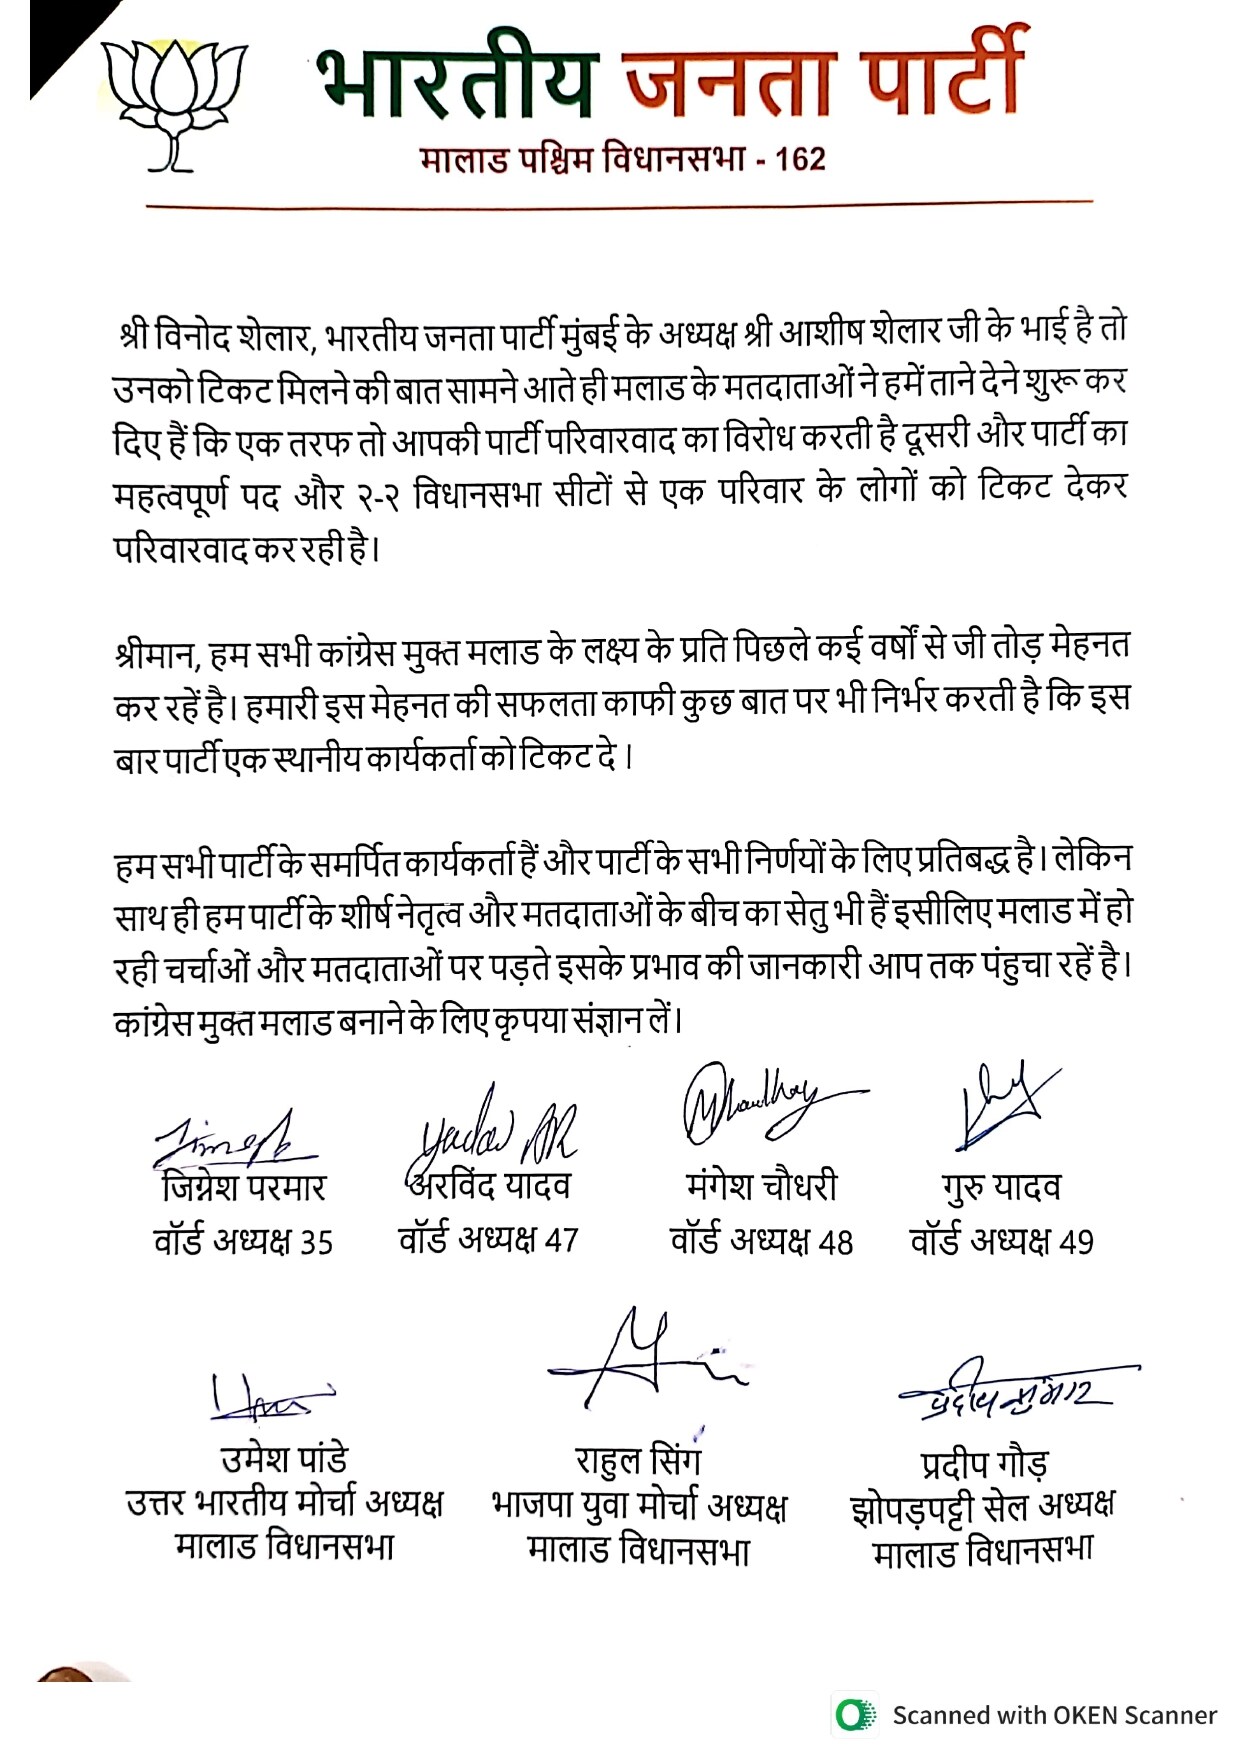 भारतीय जनता पार्टी
मालाड पश्चिम विधानसभा - 162
श्री विनोद शेलार, भारतीय जनता पार्टी मुंबई के अध्यक्ष श्री आशीष शेलार जी के भाई है तो
उनको टिकट मिलने की बात सामने आते ही मलाड के मतदाताओं ने हमें ताने देने शुरू कर
दिए हैं कि एक तरफ तो आपकी पार्टी परिवारवाद का विरोध करती है दूसरी और पार्टी का
महत्वपूर्ण पद और २-२ विधानसभा सीटों से एक परिवार के लोगों को टिकट देकर
परिवारवाद कर रही है।
श्रीमान, हम सभी कांग्रेस मुक्त मलाड के लक्ष्य के प्रति पिछले कई वर्षों से जी तोड़ मेहनत
कर रहें है। हमारी इस मेहनत की सफलता काफी कुछ बात पर भी निर्भर करती है कि इस
बार पार्टी एक स्थानीय कार्यकर्ता को टिकट दे।
हम सभी पार्टी के समर्पित कार्यकर्ता हैं और पार्टी के सभी निर्णयों के लिए प्रतिबद्ध है। लेकिन
साथ ही हम पार्टी के शीर्ष नेतृत्व और मतदाताओं के बीच का सेतु भी हैं इसीलिए मलाड में हो
रही चर्चाओं और मतदाताओं पर पड़ते इसके प्रभाव की जानकारी आप तक पंहुचा रहें है।
कांग्रेस मुक्त मलाड बनाने के लिए कृपया संज्ञान लें।
Jimesh Yadav AR Chaudhary
जिग्नेश परमार अरविंद यादव मंगेश चौधरी गुरु यादव
वॉर्ड अध्यक्ष 35 वॉर्ड अध्यक्ष 47 वॉर्ड अध्यक्ष 48 वॉर्ड अध्यक्ष 49
प्रदीप कुमार
उमेश पांडे राहुल सिंग प्रदीप गौड़
उत्तर भारतीय मोर्चा अध्यक्ष भाजपा युवा मोर्चा अध्यक्ष झोपड़पट्टी सेल अध्यक्ष
मालाड विधानसभा मालाड विधानसभा मालाड विधानसभा
Scanned with OKEN Scanner